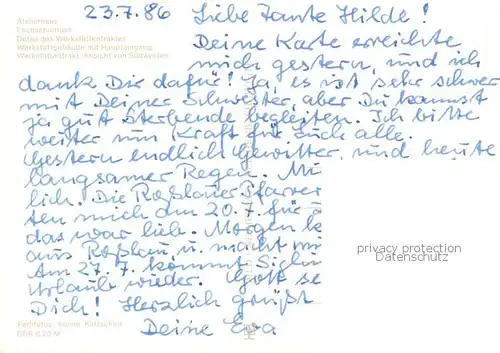 23.7.86 Liebe Tante Hilde!
Atelierhaus
Fachschulhort
Detail des Werkstättentraktes
Werkstattgebäude mit Haupteingang
Werkstättentrakt, Ansicht von Südwesten
Deine Karte erreichte
mich gestern, und ich
dank Dir dafür! Ja, es ist sehr schwer
mit Deiner Schwester, aber Du kannst
ja gut Sterbende begleiten. Ich bitte
weiter um Kraft für Euch alle.
Gestern endlich Gewitter, und heute
langsamer Regen. Mü
lich. Die Roßlauer Pfarrer
ten mich am 20.7. für
das war lieb. Morgen k
aus Roßlau u. macht
Am 27.7. kommt
Urlaub wieder. Gott se
Dich! Herzlich grüßt
Deine Eva
privacy protection
Datenschutz
Farbfotos:
DDR 0,20 M